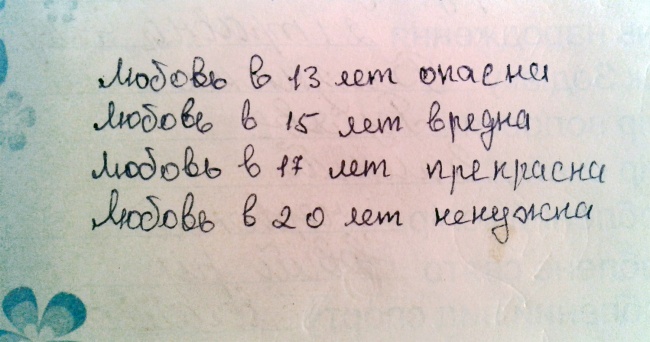 Любовь в 13 лет опасна
Любовь в 15 лет вредна
Любовь в 17 лет прекрасна
Любовь в 20 лет ненужна